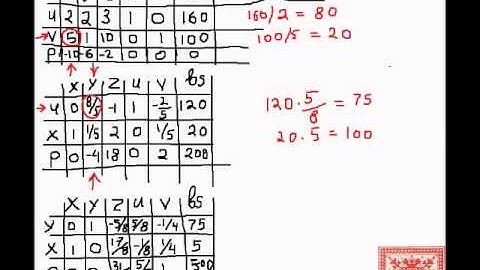 u 2 2 3 1 0 160
160/2 = 80
v 5 1 10 0 1 100
100/5 = 20
P -10 -6 -2 0 0 0
x y z u v bs
u 0 8/5 -1 1 -2/5 120
120 · 5/8 = 75
x 1 1/5 2 0 1/5 20
20 · 5 = 100
P 0 -4 18 0 2 200
x y z u v bs
y 0 1 -5/8 5/8 -1/4 75
x 1 0 17/8 -1/8 1/4 5